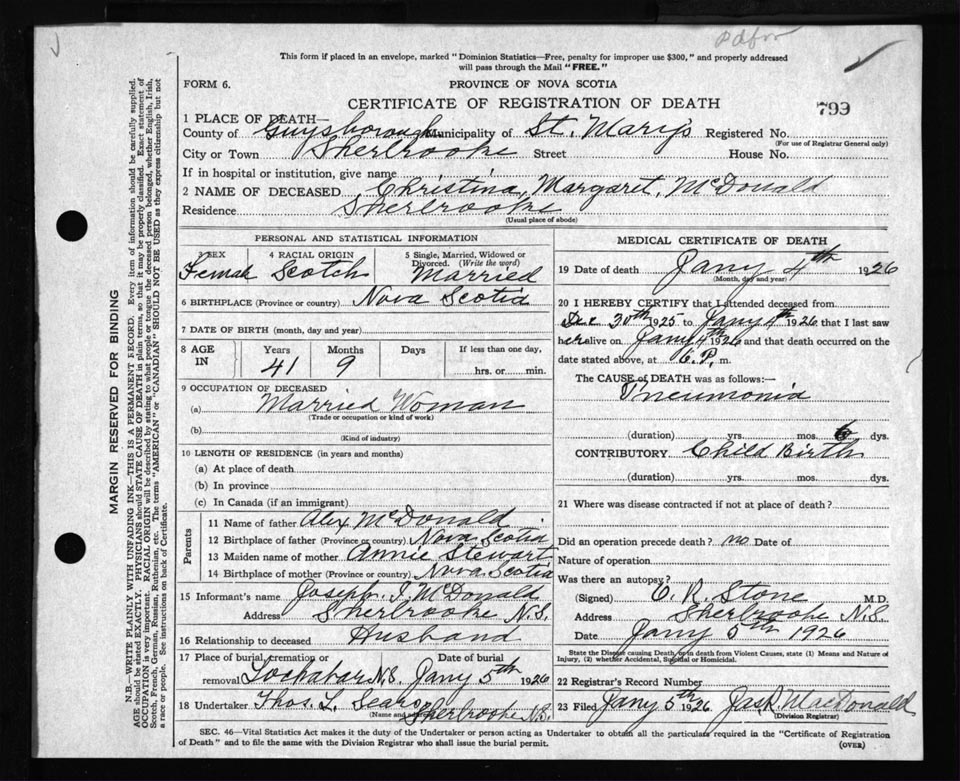 This form if placed in an envelope, marked "Dominion Statistics—Free, penalty for improper use $300," and properly addressed
will pass through the Mail "FREE."
FORM 6.
PROVINCE OF NOVA SCOTIA
CERTIFICATE OF REGISTRATION OF DEATH
799
1 PLACE OF DEATH—
County of Guysborough Municipality of St. Mary's Registered No.
(For use of Registrar General only)
City or Town Sherbrooke Street House No.
If in hospital or institution, give name
2 NAME OF DECEASED Christina, Margaret, McDonald
Residence Sherbrooke
(Usual place of abode)
PERSONAL AND STATISTICAL INFORMATION
3 SEX
Female
4 RACIAL ORIGIN
Scotch
5 Single, Married, Widowed or
Divorced. (Write the word)
Married
6 BIRTHPLACE (Province or country) Nova Scotia
7 DATE OF BIRTH (month, day and year)
8 AGE
IN
Years
41
Months
9
Days
If less than one day,
hrs. or min.
9 OCCUPATION OF DECEASED
(a) Married Woman
(Trade or occupation or kind of work)
(b)
(Kind of industry)
10 LENGTH OF RESIDENCE (in years and months)
(a) At place of death
(b) In province
(c) In Canada (if an immigrant)
Parents
11 Name of father Alex McDonald
12 Birthplace of father (Province or country) Nova Scotia
13 Maiden name of mother Annie Stewart
14 Birthplace of mother (Province or country) Nova Scotia
15 Informant's name Joseph. J. McDonald
Address Sherbrooke N.S.
16 Relationship to deceased Husband
17 Place of burial, cremation or
removal Lochabar N.S.
Date of burial
Jany 5th 1926
18 Undertaker Thos. L. Sears
(Name and address)
Sherbrooke N.S.
MEDICAL CERTIFICATE OF DEATH
19 Date of death Jany 4th 1926
(Month, day and year)
20 I HEREBY CERTIFY that I attended deceased from
Dec 30th 1925 to Jany 4th 1926 that I last saw
her alive on Jany 4th 1926 and that death occurred on the
date stated above, at 6. P. m.
The CAUSE of DEATH was as follows:—
Pneumonia
(duration) yrs. mos. 6 dys.
CONTRIBUTORY Child Birth
(duration) yrs. mos. dys.
21 Where was disease contracted if not at place of death?
Did an operation precede death? no Date of
Nature of operation
Was there an autopsy?
(Signed) C. R. Stone M.D.
Address Sherbrooke N.S.
Date Jany 5th 1926
State the Disease causing Death, or in death from Violent Causes, state (1) Means and Nature of
Injury, (2) whether Accidental, Suicidal or Homicidal.
22 Registrar's Record Number
23 Filed Jany 5th 1926 Jas. R. MacDonald
(Division Registrar)
SEC. 46—Vital Statistics Act makes it the duty of the Undertaker or person acting as Undertaker to obtain all the particulars required in the "Certificate of Registration
of Death" and to file the same with the Division Registrar who shall issue the burial permit.
(OVER)
MARGIN RESERVED FOR BINDING
N.B.—WRITE PLAINLY WITH UNFADING INK—THIS IS A PERMANENT RECORD. Every item of information should be carefully supplied.
AGE should be stated EXACTLY. PHYSICIANS should STATE CAUSE OF DEATH in plain terms, so that it may be properly classified. Exact statement of
OCCUPATION is very important. RACIAL ORIGIN will be described by stating to what people or tongue the deceased person belonged, whether English, Irish,
Scotch, French, German, Russian, Ruthenian, etc. The terms "AMERICAN" or "CANADIAN" SHOULD NOT BE USED as they express citizenship but not
a race or people. See instructions on back of Certificate.